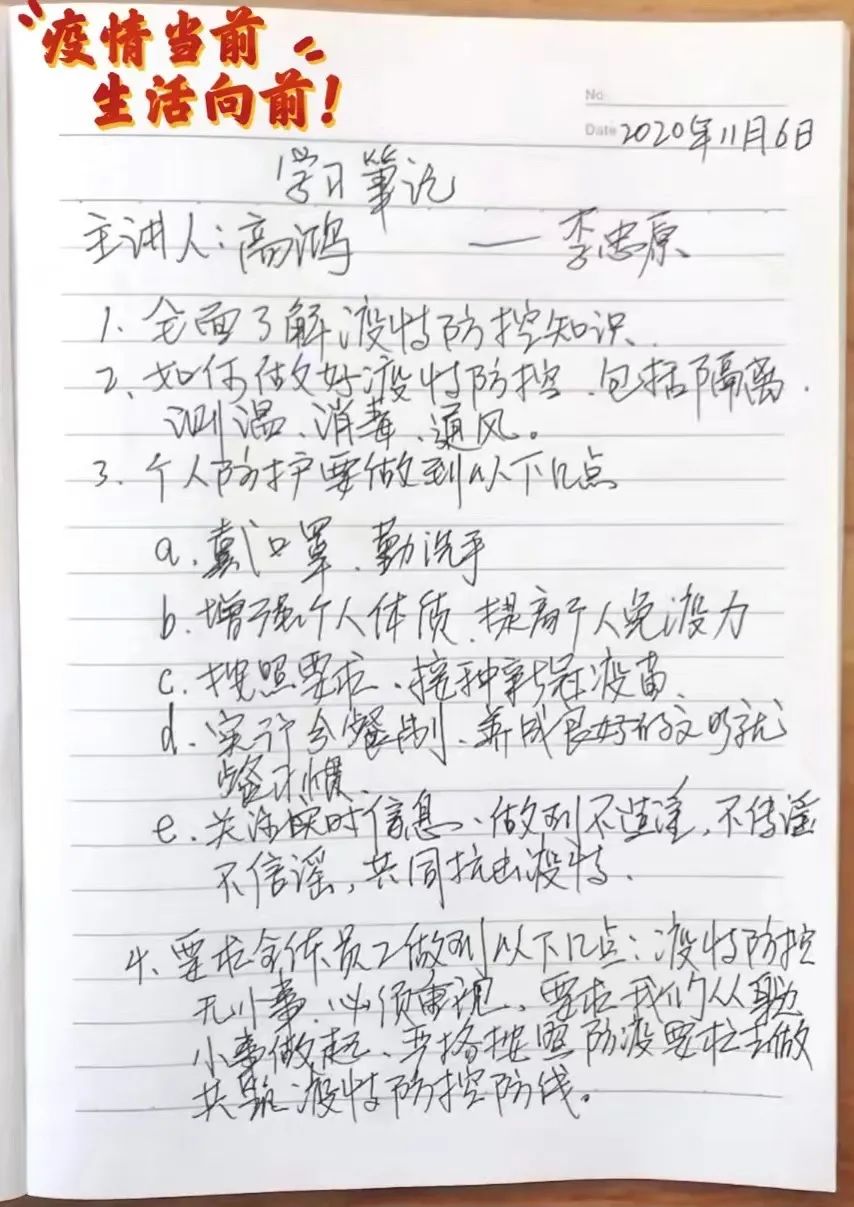 疫情当前
生活向前!
No.
Date 2020年11月6日
学习笔记
主讲人:高鸿 — 李忠原
1、全面了解疫情防控知识、
2、如何做好疫情防控、包括隔离、
测温、消毒、通风。
3、个人防护要做到以下几点
a、戴口罩、勤洗手
b、增强个人体质、提高个人免疫力
c、按照要求、接种新冠疫苗、
d、实行分餐制、养成良好的文明就
餐习惯、
e、关注实时信息、做到不造谣,不传谣
不信谣,共同抗击疫情、
4、要求全体员工做到以下几点:疫情防控
无小事、必须重视、要求我们从身边
小事做起、严格按照防疫要求去做
共筑疫情防控防线。